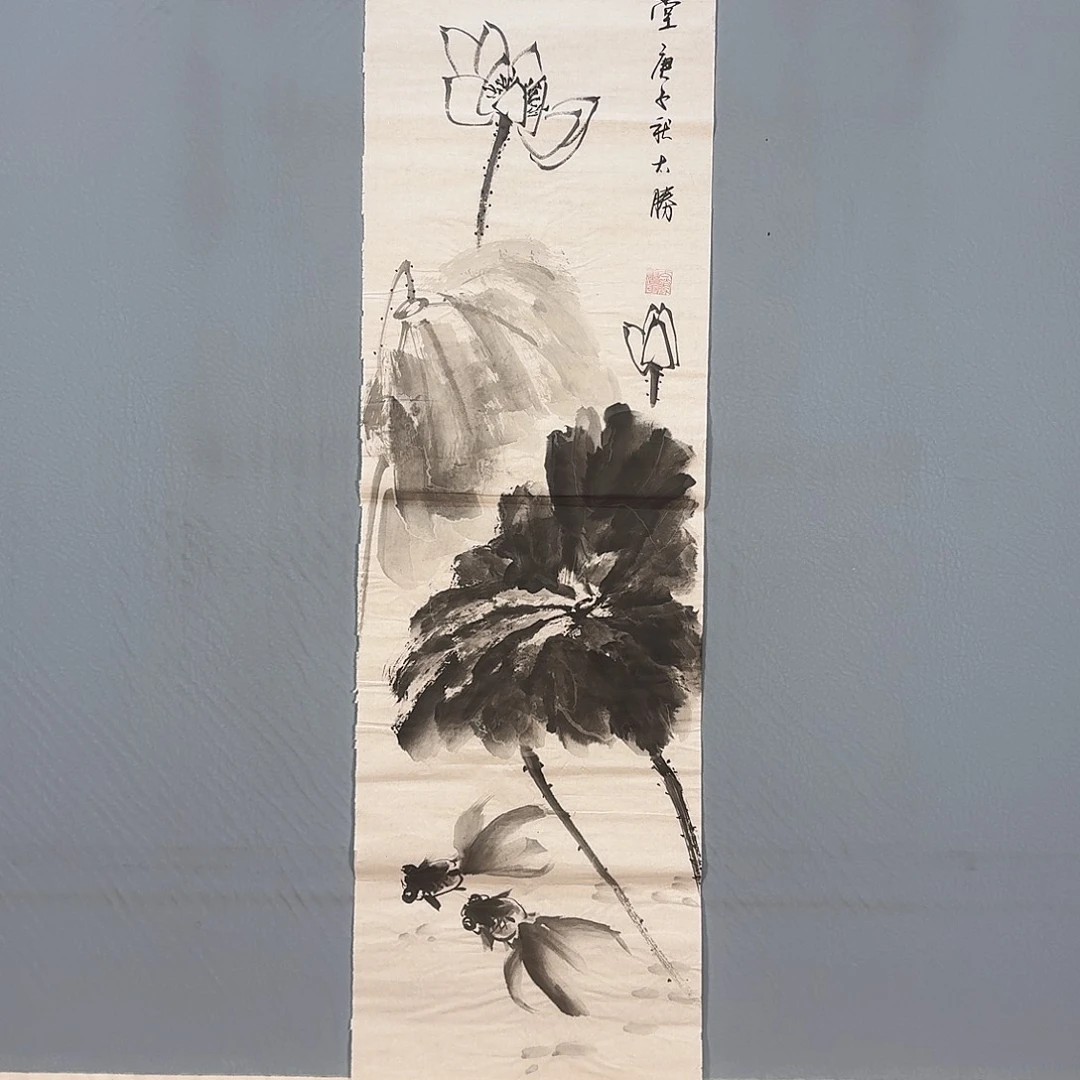 堂庚子秋大勝